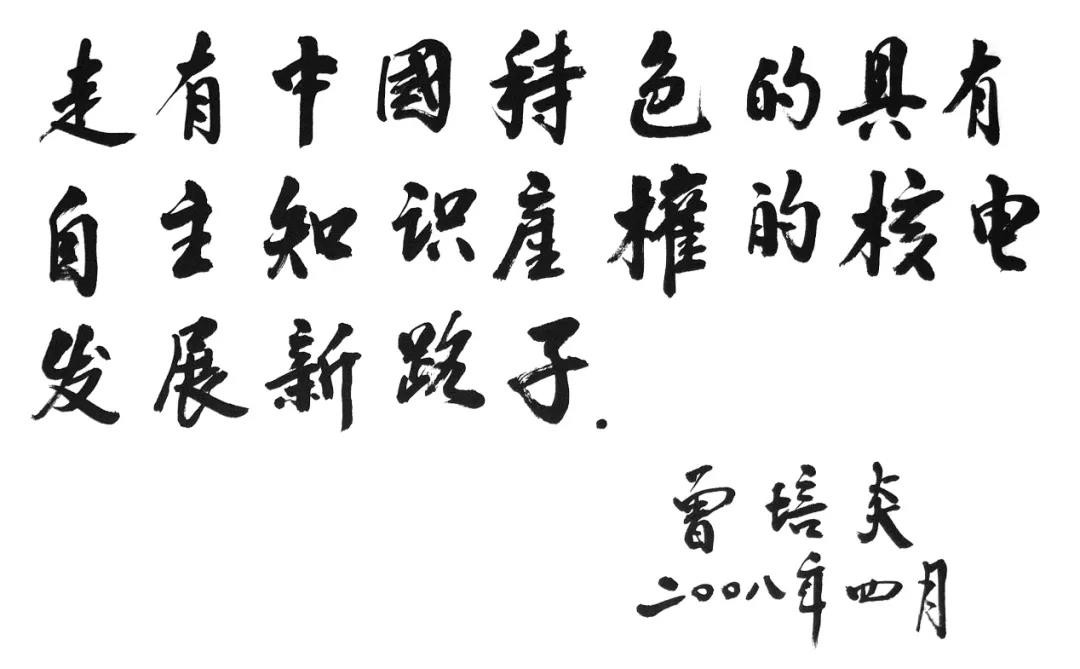 走有中國特色的具有
自主知识産權的核电
发展新路子.
曾培炎
二〇〇八年四月